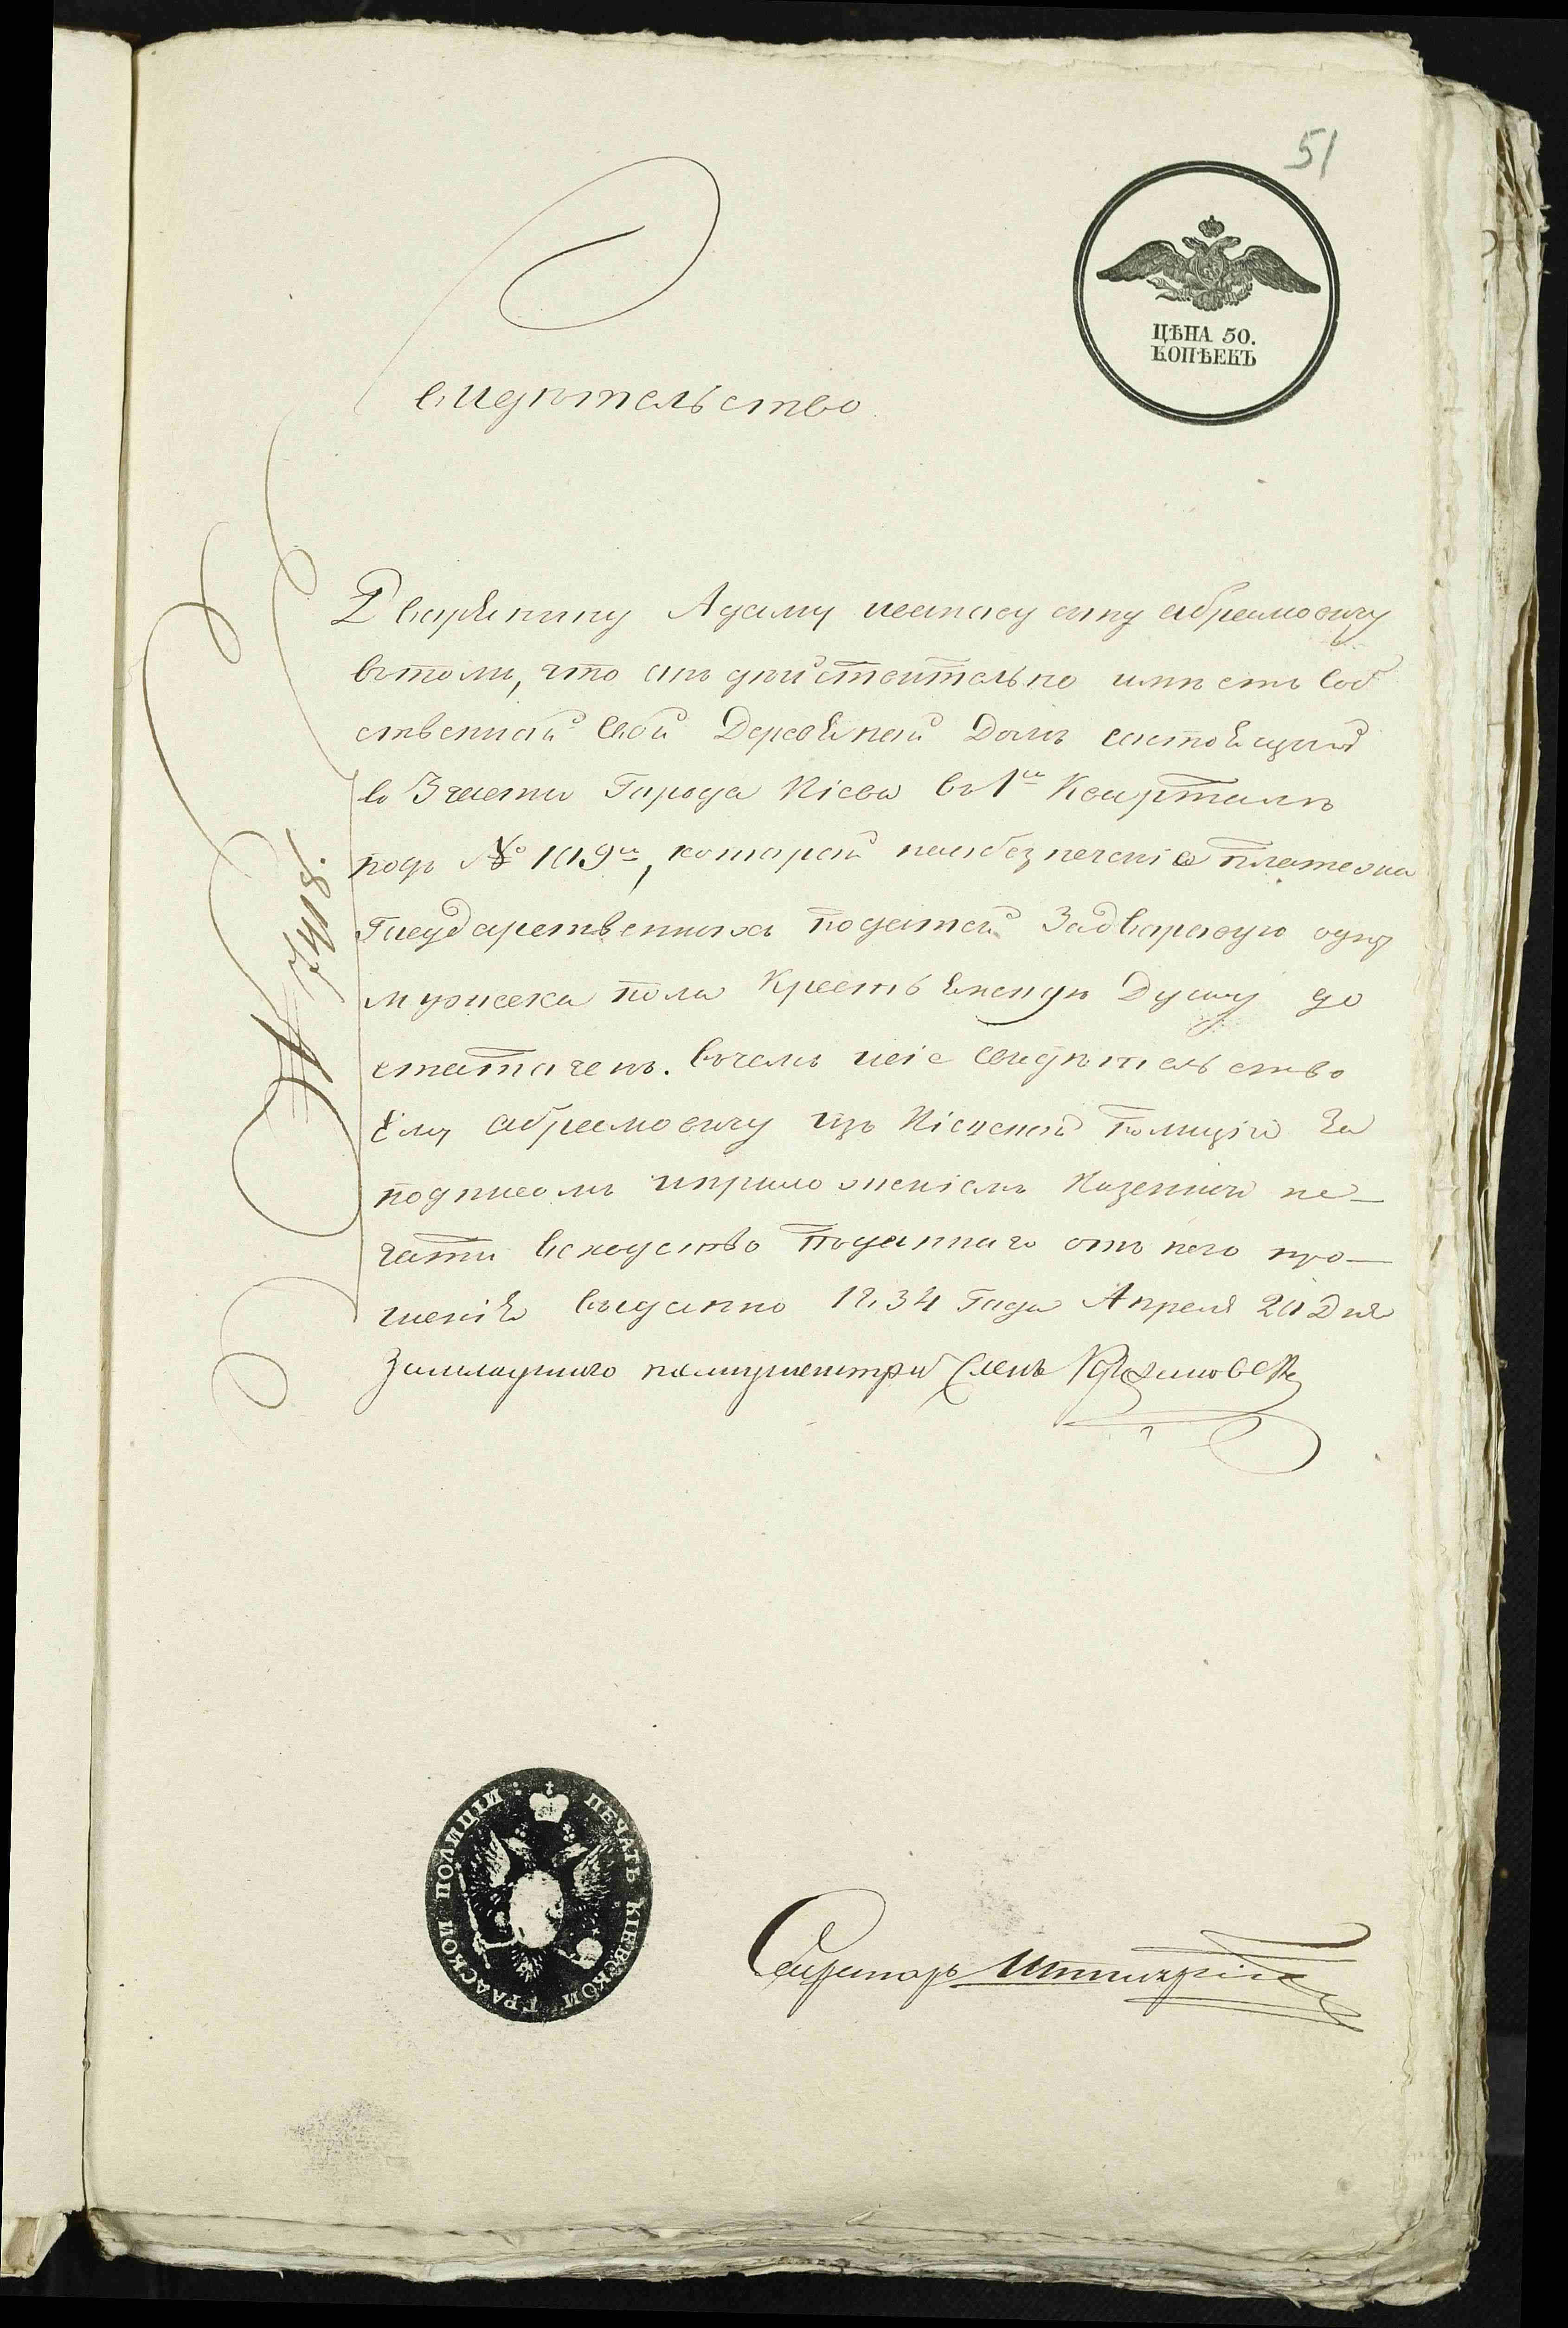 51
ЦѢНА 50.
КОПѢЕКЪ
Свидѣтельство
Дварянину Адаму сыну Абрамовичу
вътомъ, что онъ дѣйствительно имѣетъ соб
ственной свой Деревяной Домъ состоящій
в 3 части Города Кіева въ 1й Кварталѣ
подъ № 109м, которой наабезпеченіе платежа
Государственныхъ податей Задваровую одну
мужеска пола Крестьянскую Душу до
статоченъ. въчемъ сіе свидѣтельство
Ему Абрамовичу изъ Кіевской Полиціи за
подписомъ иприложеніемъ Казенной пе-
чати вслѣдство поданнаго отъ него про-
шенія выданно 1834 Года Апреля 20 Дня
№ 7418.
За полицмейстра
ПЕЧАТЬ КІЕВСКОЙ ГРАДСКОЙ ПОЛИЦІИ
Секретарь